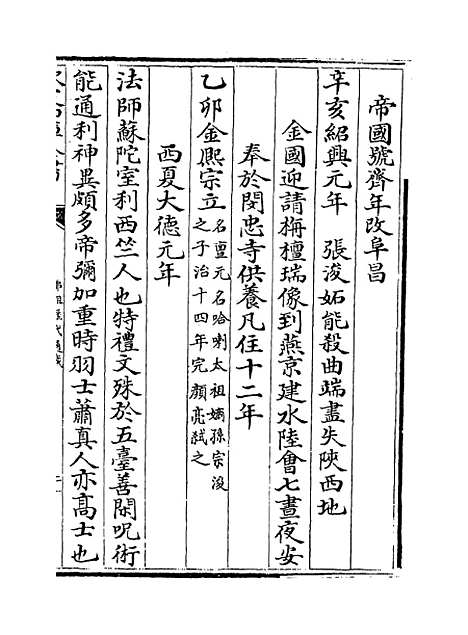 帝國號齊年改阜昌
辛亥紹興元年　張浚妬能殺曲端盡失陝西地
金國迎請栴檀瑞像到燕京建水陸會七晝夜安
奉於閔忠寺供養凡住十二年
乙卯金熈宗立名亶元名哈喇太祖嫡孫宗浚
之子治十四年完顏亮弑之
西夏大德元年
法師蘇陀室利西竺人也特禮文殊於五臺善閑呪術
能通利神異頗多帝彌加重時羽士蕭真人亦髙士也
佛祖歷代通載